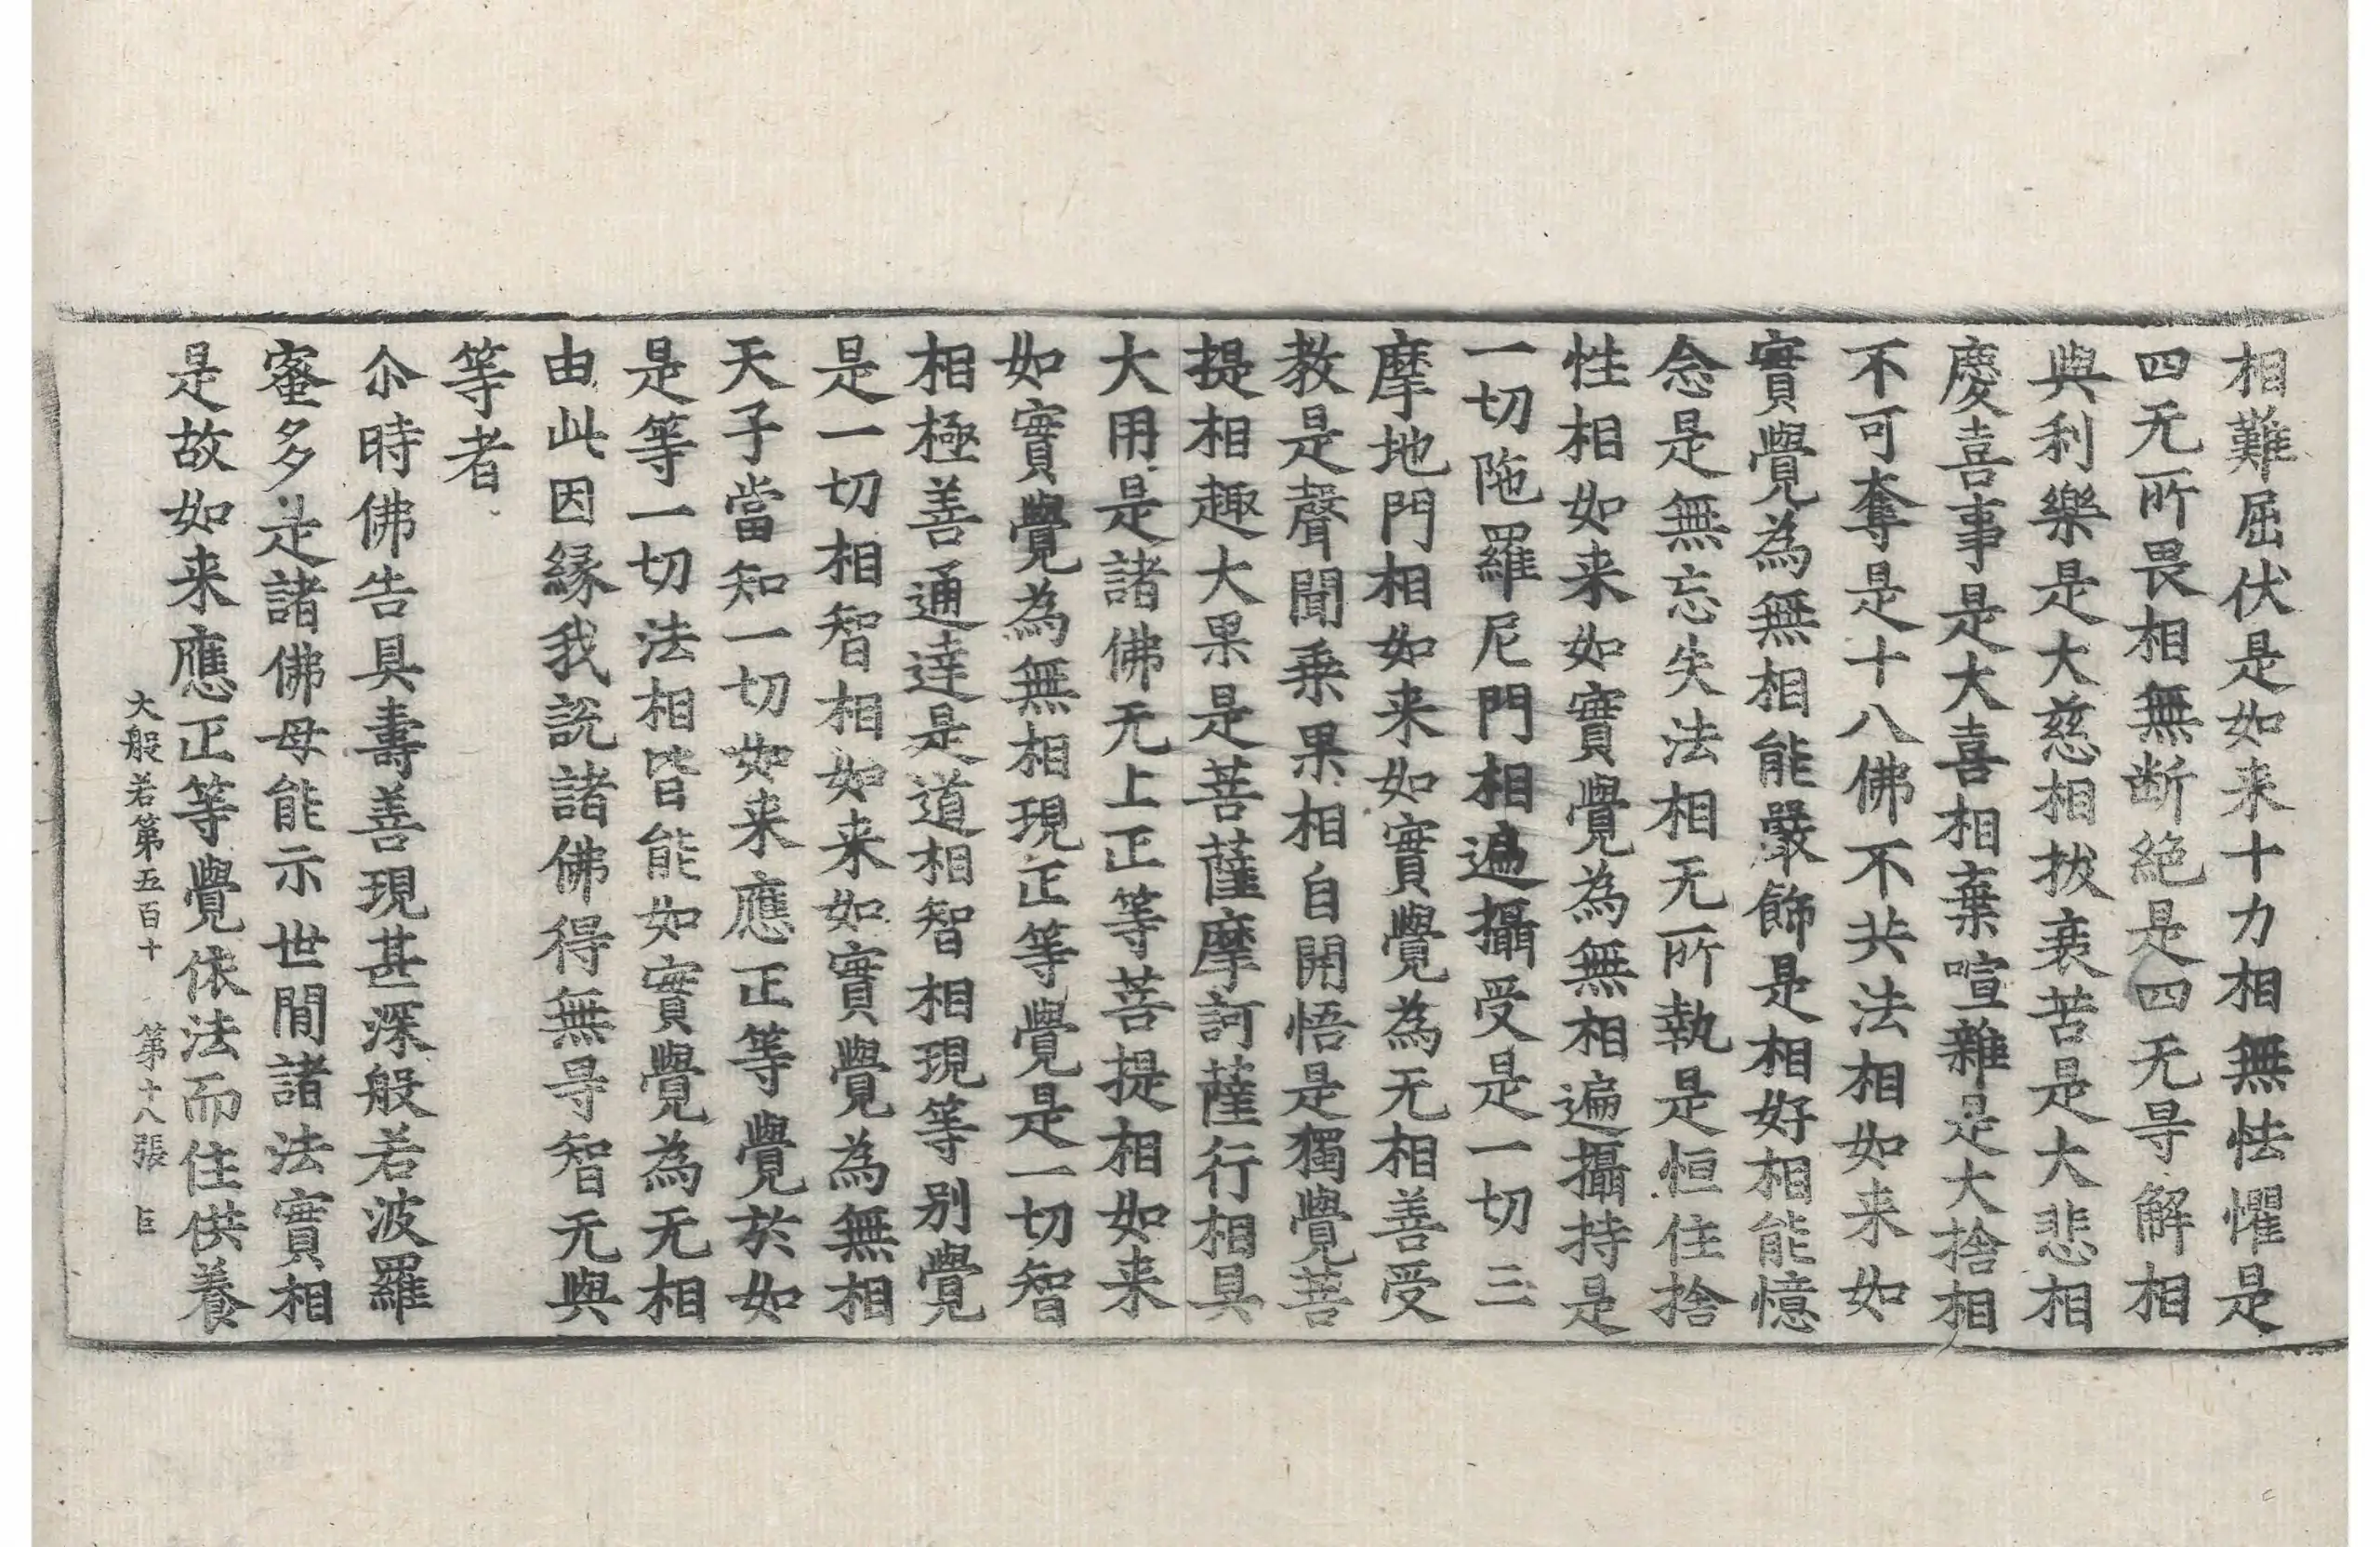 相難屈伏是如来十力相無怯懼是
四无所畏相無断絶是四无㝵解相
與利樂是大慈相拔衰苦是大悲相
慶喜事是大喜相棄喧雜是大捨相
不可奪是十八佛不共法相如来如
實覺為無相能嚴飾是相好相能憶
念是無忘失法相无所執是恒住捨
性相如来如實覺為無相遍攝持是
一切陁羅尼門相遍攝受是一切三
摩地門相如来如實覺為无相善受
教是聲聞乗果相自開悟是獨覺菩
提相趣大果是菩薩摩訶薩行相具
大用是諸佛无上正等菩提相如来
如實覺為無相現正等覺是一切智
相極善通達是道相智相現等别覺
是一切相智相如来如實覺為無相
天子當知一切如来應正等覺於如
是等一切法相皆能如實覺為无相
由此因縁我説諸佛得無㝵智无與
等者
尒時佛告具壽善現甚深般若波羅
蜜多是諸佛母能示世間諸法實相
是故如来應正等覺依法而住供養
大般若第五百十 第十八張